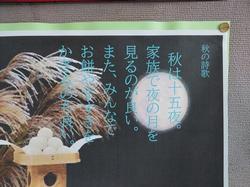 秋の詩歌
秋は十五夜。
家族で夜の月を
見るのが良い。
また、みんなで
お餅